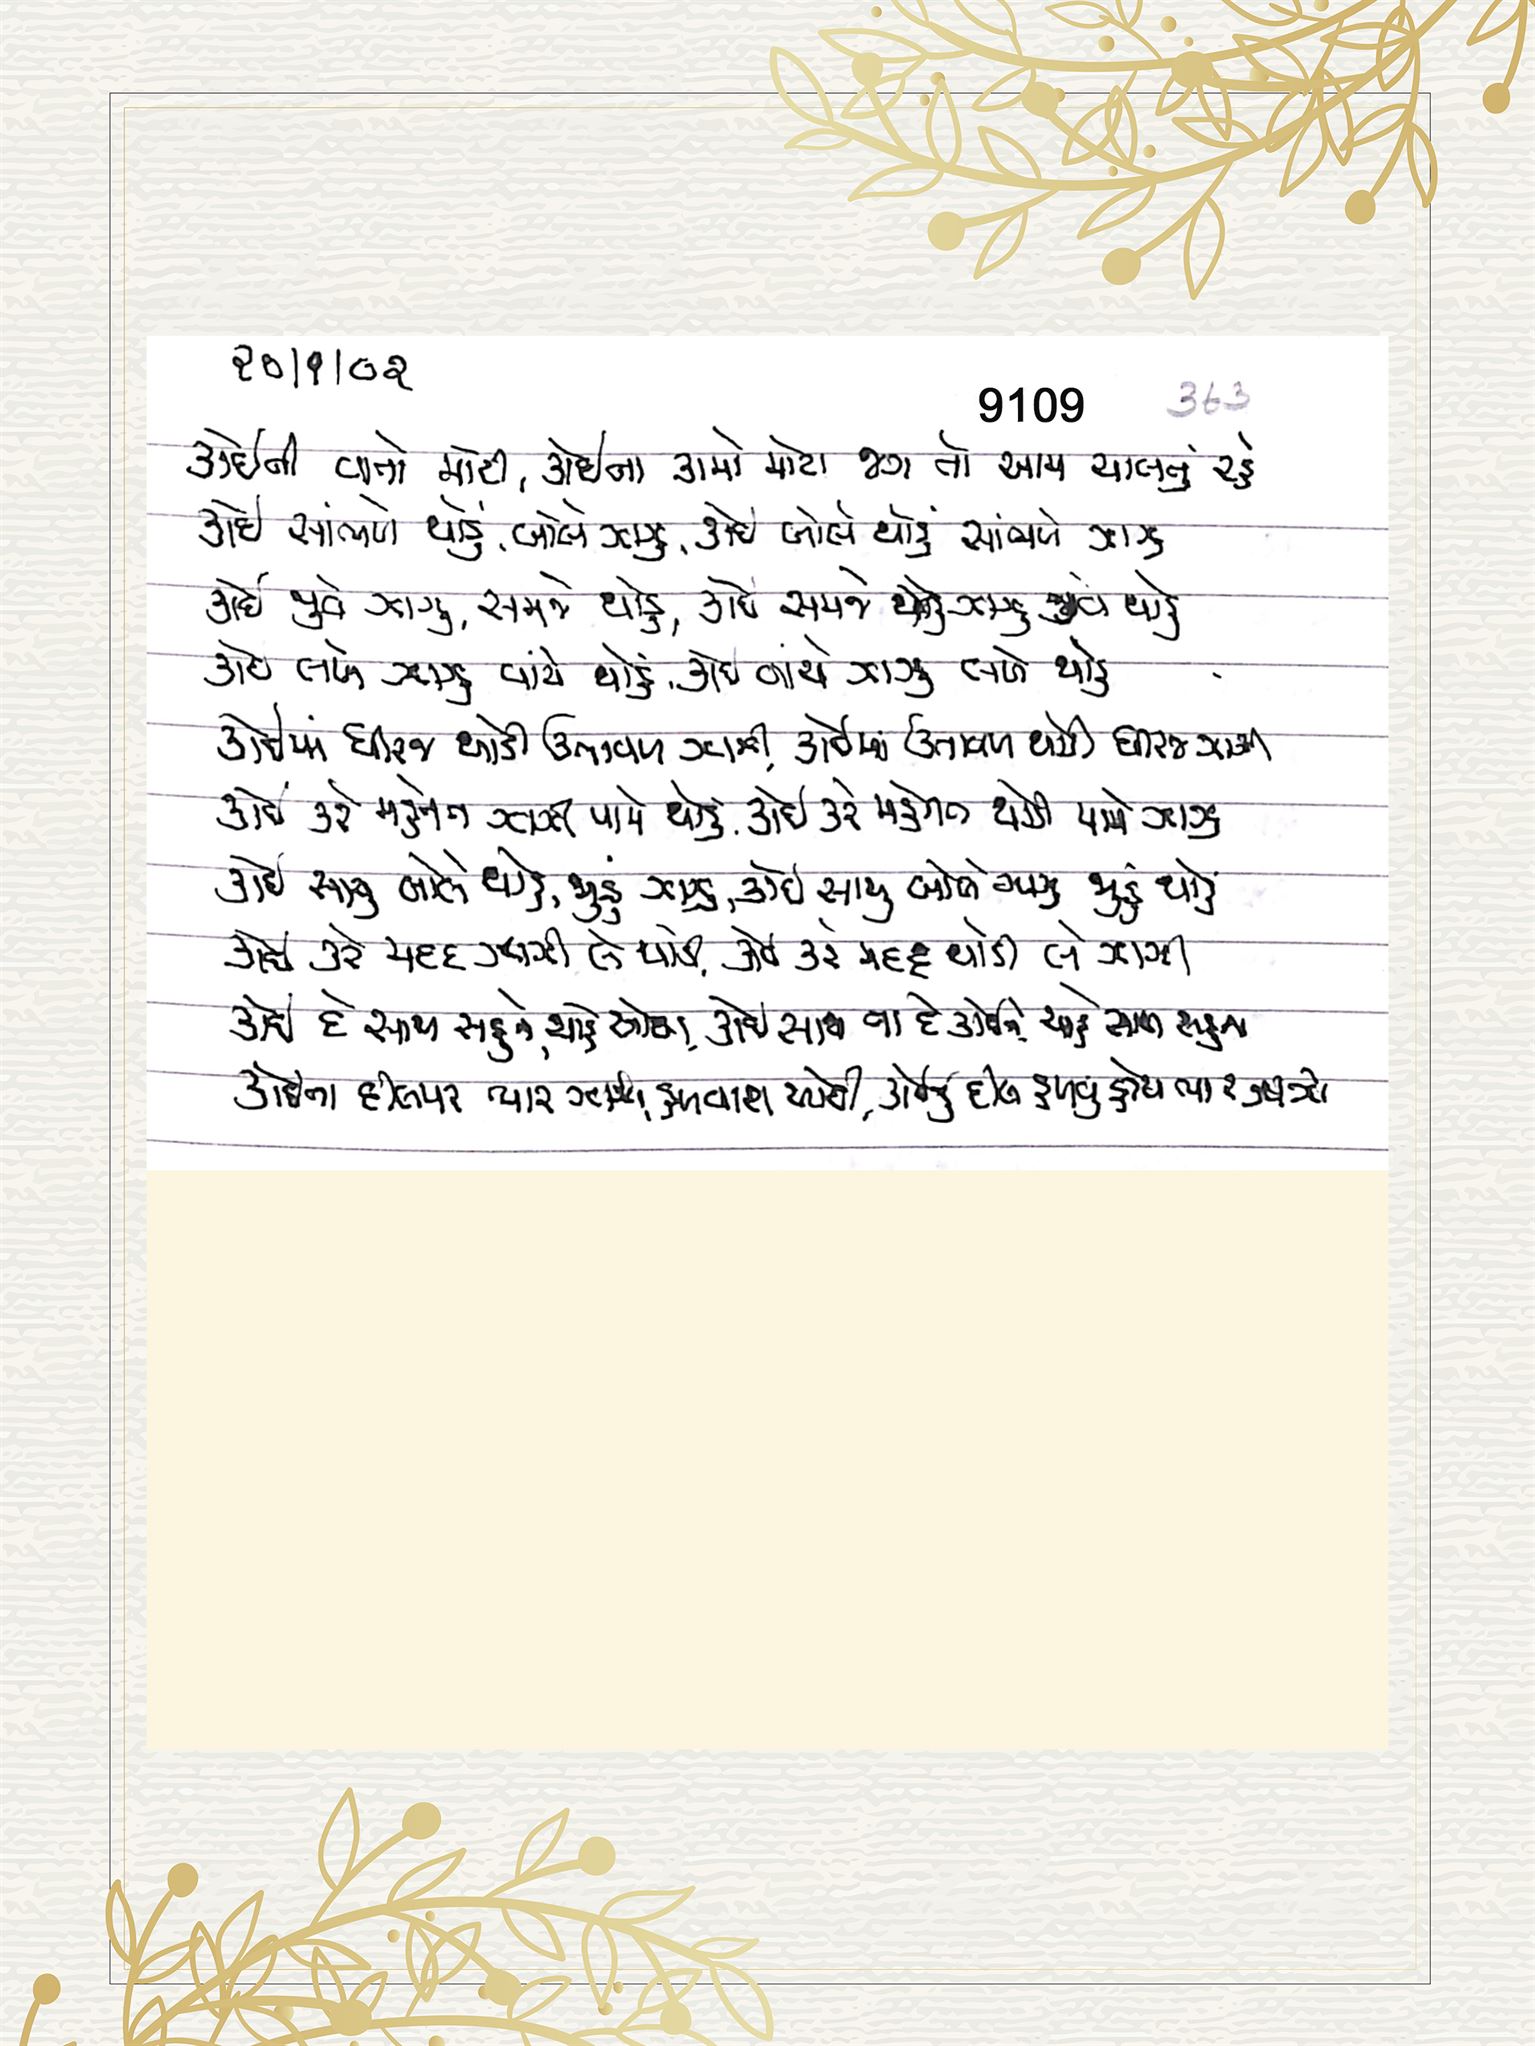 ૨૦/૧/૦૨
9109 363
કોઈની વાતો મોટી, કોઈના કામો મોટા જગ તો આમ ચાલતું રહે
કોઈ સાંભળે થોડું, બોલે ઝાઝુ, કોઈ બોલે થોડું સાંભળે ઝાઝુ
કોઈ જુવે ઝાઝુ, સમજે થોડુ, કોઈ સમજે ઝાઝુ જુવે થોડુ
કોઈ લખે ઝાઝુ વાંચે થોડું, કોઈ વાંચે ઝાઝુ લખે થોડુ
કોઈમાં ધીરજ થોડી ઉતાવળ ઝાઝી, કોઈમાં ઉતાવળ થોડી ધીરજ ઝાઝી
કોઈ કરે મહેનત ઝાઝી પામે થોડું, કોઈ કરે મહેનત થોડી પામે ઝાઝુ
કોઈ સાચુ બોલે થોડુ, જુઠું ઝાઝુ, કોઈ સાચુ બોલે ઝાઝુ જુઠું થોડું
કોઈ કરે મદદ ઝાઝી લે થોડી, કોઈ કરે મદદ થોડી લે ઝાઝી
કોઈ દે સાથ સહુને, ચાહે, કોઈ સાથ ના દે કોઈને, ચાહે સાથ સહુના
કોઈના દીલપર પ્યાર કોઈનું દીલ પ્યાર